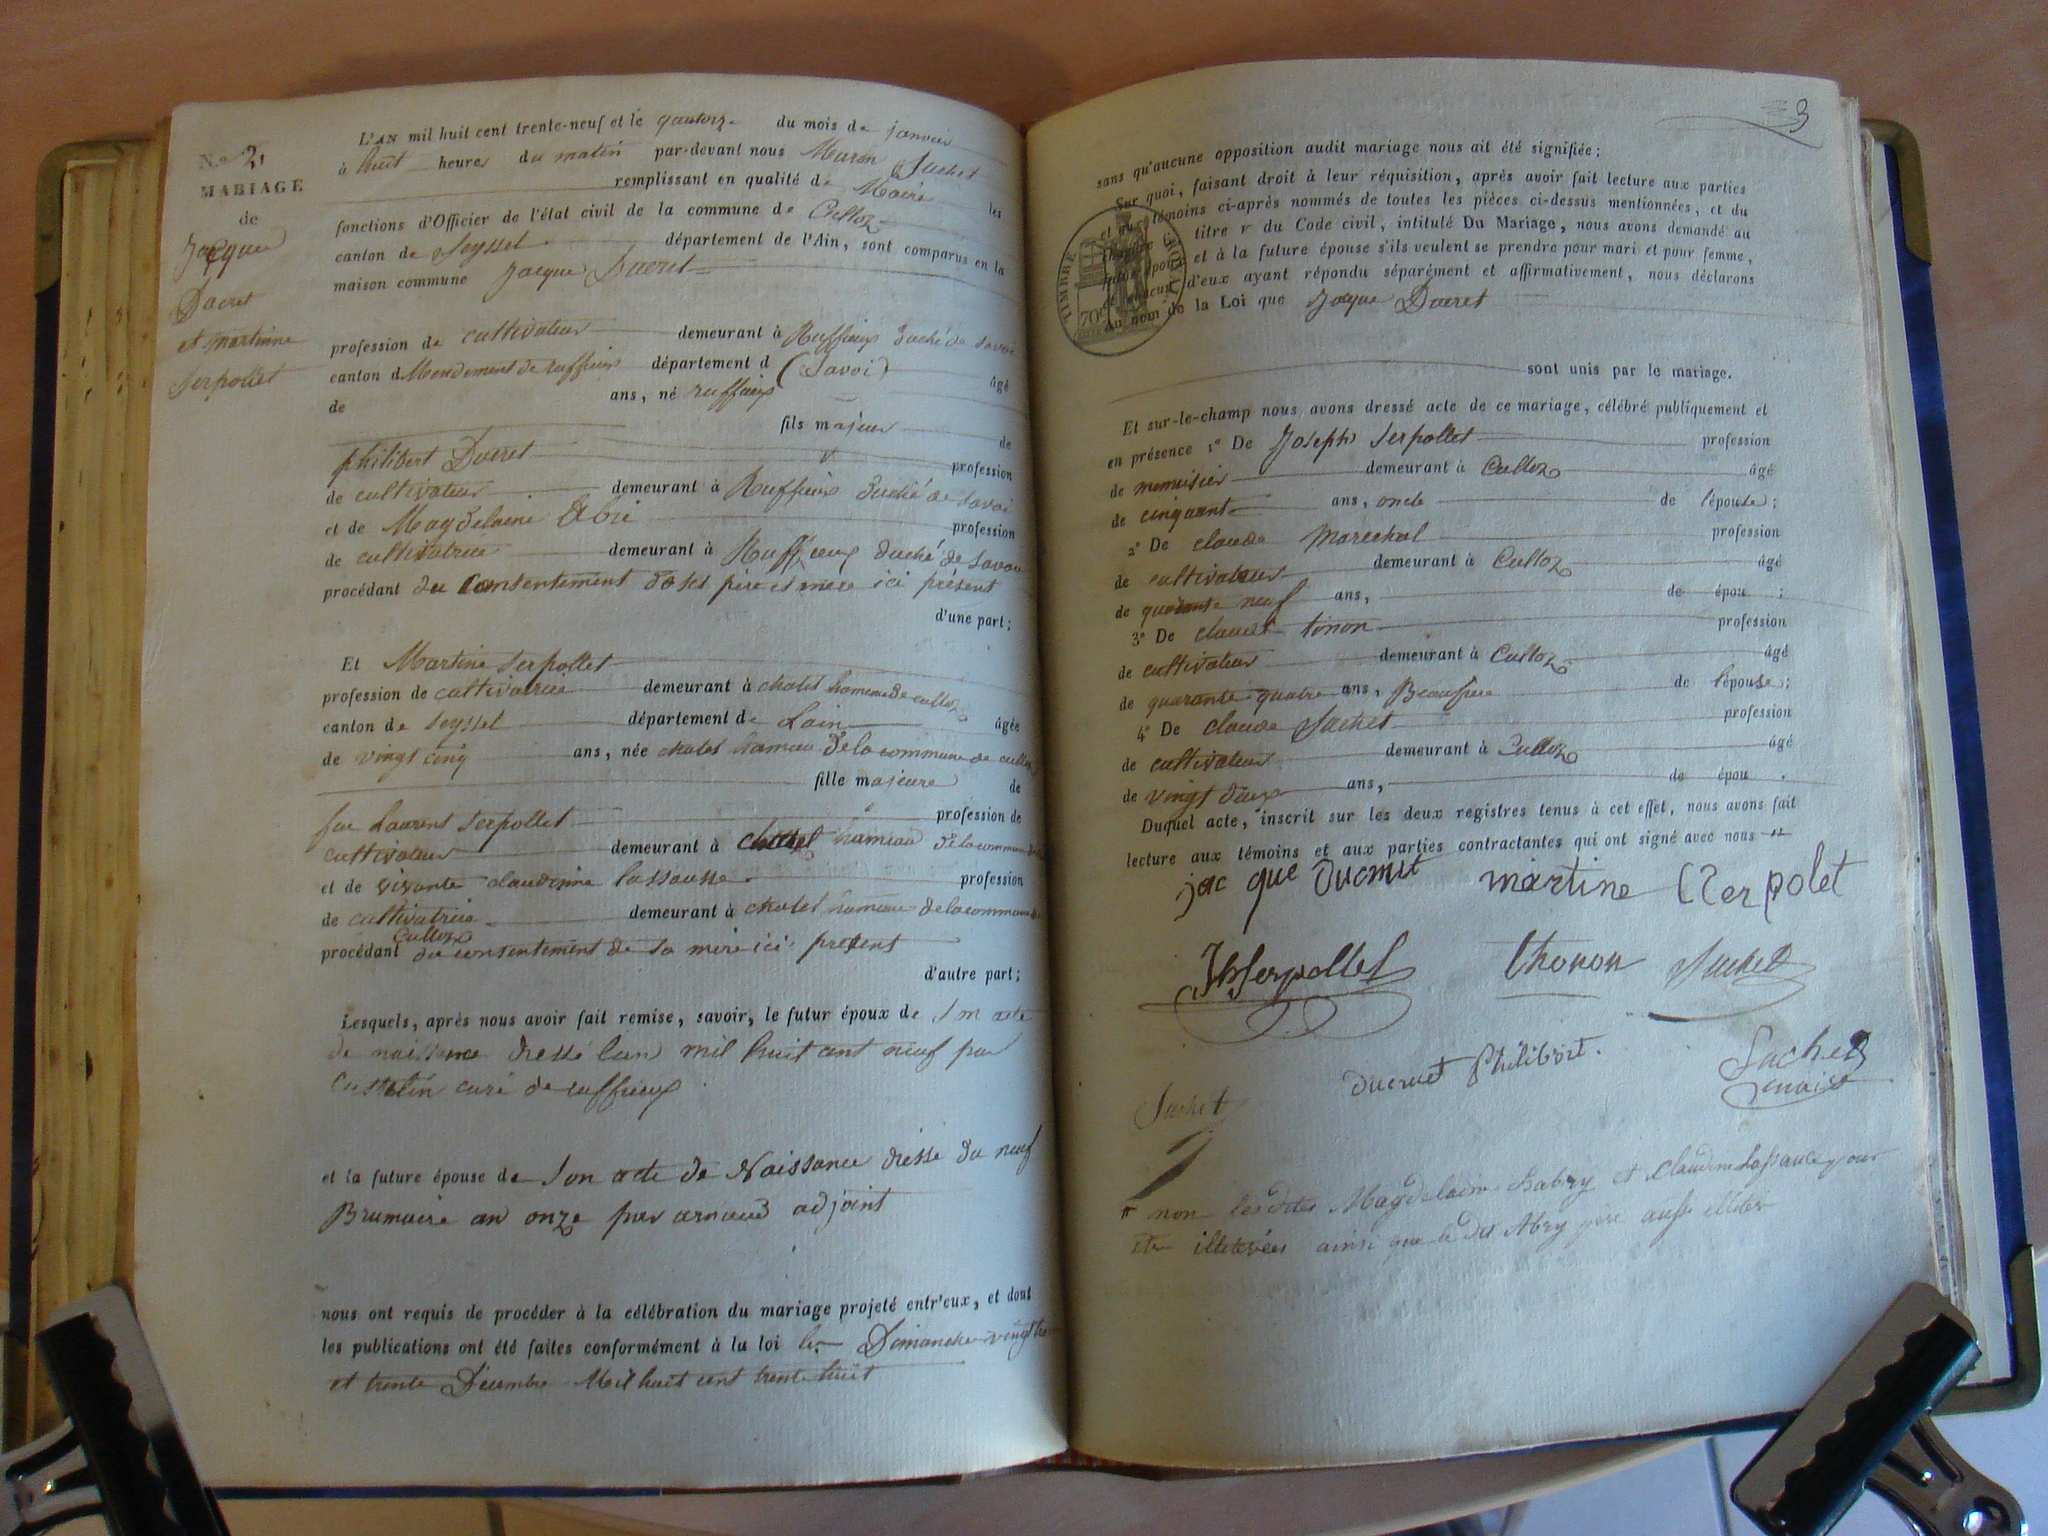 N.° 2,
MARIAGE
de
Jacque
Ducret
et martinne
Serpollet
L'AN mil huit cent trente-neuf et le quatorze du mois de janvier
à huit heures du matin par-devant nous Sachet
remplissant en qualité de Maire les
fonctions d'Officier de l'état civil de la commune de Culloz
canton de Seyssel département de l'Ain, sont comparus en la
maison commune Jacque Ducret
profession de cultivateur demeurant à Ruffieux Duché de Savoi
canton d Mendement de ruffieux département d (Savoi) âgé
de ans, né ruffieux
fils majeur de
philibert Ducret profession
de cultivateur demeurant à Ruffieux Duché de Savoi
et de Magdelaine profession
de cultivatrice demeurant à Ruffieux duché de Savoi
procédant du Consentement de ses père et mere ici présent
d'une part;
Et Martine Serpollet
profession de cultivatrice demeurant à chatel hameau de culloz
canton de Seyssel département de Lain âgée
de vingt cinq ans, née chatel hameau de la commune de culloz
fille majeure de
feu Laurent Serpollet profession de
cultivateur demeurant à chatel hameau de la commune de
et de vivante claudinne Lassausse profession
de cultivatrice demeurant à chatel hameau de la commune de
Culloz
procédant du consentement de sa mere ici présent
d'autre part;
Lesquels, après nous avoir fait remise, savoir, le futur époux de son acte
de naissance dressé lan mil huit cent neuf par
curé de ruffieux
et la future épouse de son acte de Naissance dressé du neuf
Brumaire an onze par arnaud adjoint
nous ont requis de procéder à la célébration du mariage projeté entr'eux, et dont
les publications ont été faites conformément à la loi les Dimanche vingt trois
et trente Décembre Mil huit cent trente huit
3
sans qu'aucune opposition audit mariage nous ait été signifiée;
Sur quoi, faisant droit à leur réquisition, après avoir fait lecture aux parties
et aux témoins ci-après nommés de toutes les pièces ci-dessus mentionnées, et du
chapitre titre V du Code civil, intitulé Du Mariage, nous avons demandé au
futur époux et à la future épouse s'ils veulent se prendre pour mari et pour femme,
et chacun d'eux ayant répondu séparément et affirmativement, nous déclarons
au nom de la Loi que Jacque Ducret
TIMBRE ROYAL
70c
sont unis par le mariage.
Et sur-le-champ nous avons dressé acte de ce mariage, célébré publiquement et
en présence 1° De Joseph Serpollet profession
de menuisier demeurant à Culloz âgé
de cinquant ans, oncle de l'épouse;
2° De claude Marechal profession
de cultivateur demeurant à Culloz âgé
de quarante neuf ans, de épou ;
3° De claude tonon profession
de cultivateur demeurant à Culloz âgé
de quarante quatre ans, Beaufrere de l'épouse;
4° De claude Sachet profession
de cultivateur demeurant à Culloz âgé
de vingt deux ans, de épou .
Duquel acte, inscrit sur les deux registres tenus à cet effet, nous avons fait
lecture aux témoins et aux parties contractantes qui ont signé avec nous
jac que Ducruit martine Cerpolet
Jh Serpollet thonon Sachet
Ducruet Philibert. Sachet
maire
Sachet
non lesdites Magdelaine et Claudine Lassauce pour
etre illeterées ainsi que le dit Abry père aussi